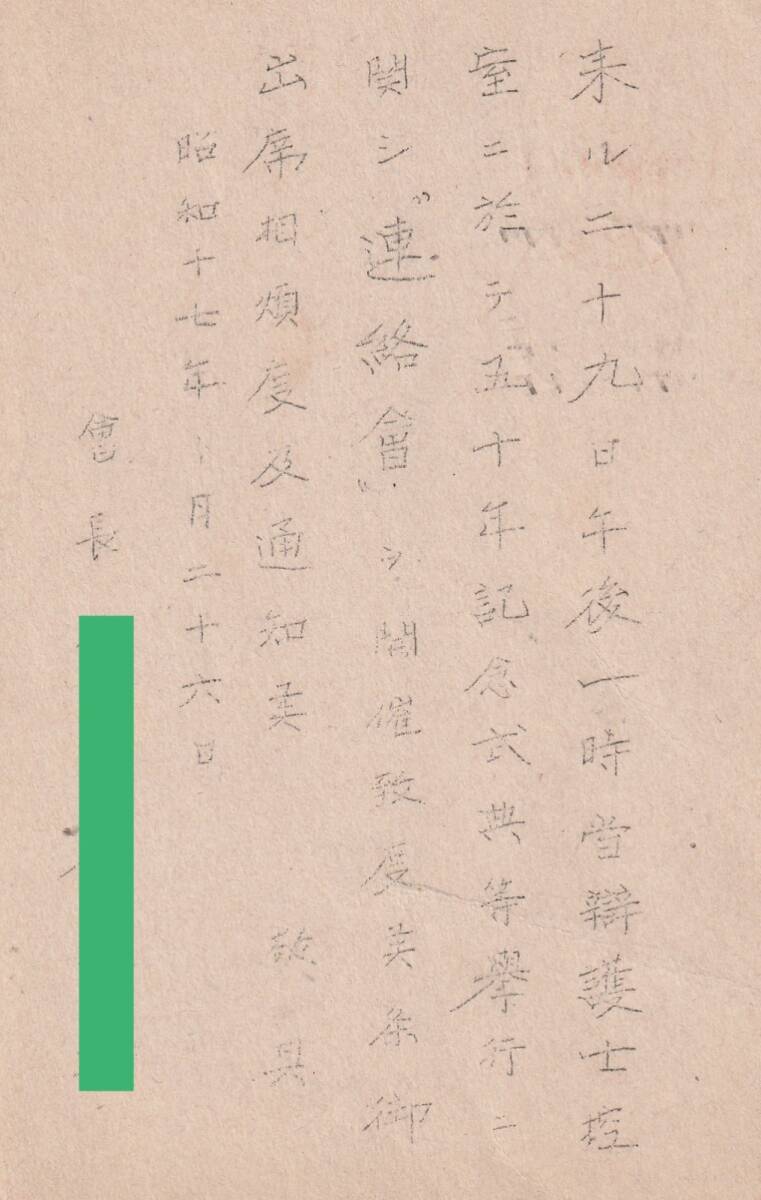 来ル二十九日午後一時當辯護士控
室ニ於テ五十年記念式典等擧行ニ
関シ〝連絡會〟ヲ開催致度候条御
出席相煩度及通知候 敬具
昭和十七年十月二十六日
會長